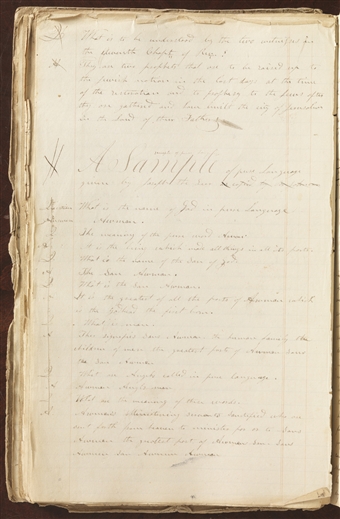 What is to be understood by the two witnesses in
the eleventh Chapt of Rev.?
They are two prophets that are to be raised up to
the jewish nation in the last days at the time
of the restoration and to prophecy to the Jews after
they are gathered and have built the city of Jerusalem
in the Land of their Fathers
A Sample of pure Language
given by Joseph the Seer
Question What is the name of God in pure Language
Answer Awmen.
The meaning of the pure word
It is the being which made all things in all its parts
What is the name of the Son of God
The Son Awmen.
What is the Son Awmen.
It is the greatest of all the parts of Awmen which
is the Godhead the first born.
What is man.
This signifies Sons Awmen. the human family the
children of men the greatest parts of Awmen Sons
the Son Awmen
What are Angels called in pure language.
Awmen Angls-men
What are the meaning of these words.
Awmen's ministering servants Sanctified who are
sent forth from heaven to minister for or to Sons
Awmen the greatest part of Awmen Son. Sons
Awmen Son Awmen Awmen